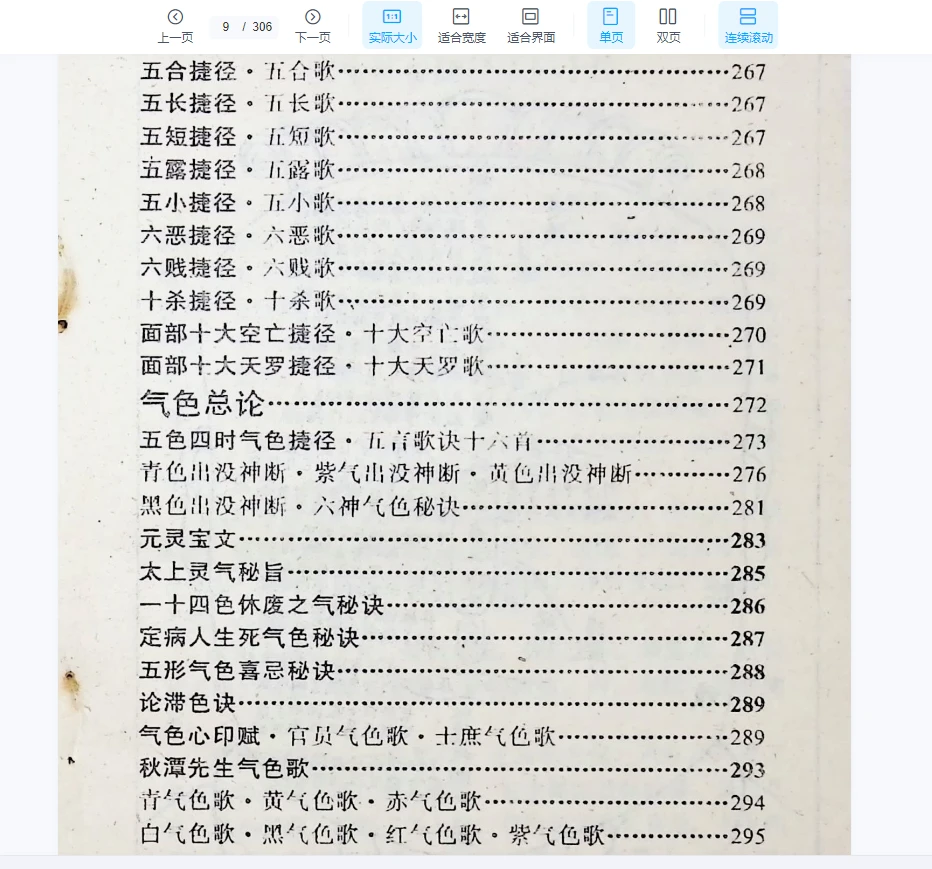 上一页 9 / 306 下一页 实际大小 适合宽度 适合界面 单页 双页 连续滚动
五合捷径·五合歌……267
五长捷径·五长歌……267
五短捷径·五短歌……267
五露捷径·五露歌……268
五小捷径·五小歌……268
六恶捷径·六恶歌……269
六贱捷径·六贱歌……269
十杀捷径·十杀歌……269
面部十大空亡捷径·十大空亡歌……270
面部十大天罗捷径·十大天罗歌……271
气色总论……272
五色四时气色捷径·五言歌诀十六首……273
青色出没神断·紫气出没神断·黄色出没神断……276
黑色出没神断·六神气色秘诀……281
元灵宝文……283
太上灵气秘旨……285
一十四色休废之气秘诀……286
定病人生死气色秘诀……287
五形气色喜忌秘诀……288
论滞色诀……289
气色心印赋·官员气色歌·士庶气色歌……289
秋潭先生气色歌……293
青气色歌·黄气色歌·赤气色歌……294
白气色歌·黑气色歌·红气色歌·紫气色歌……295